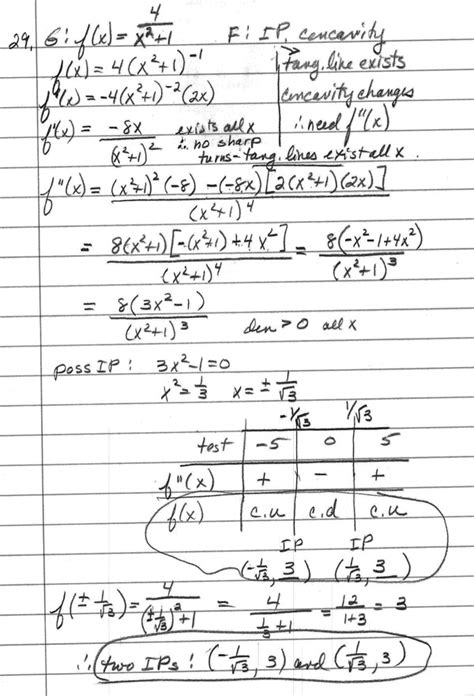 29. G: f(x) = 4/(x²+1)   F: IP, concavity
f(x) = 4(x²+1)⁻¹   tang. line exists
f'(x) = -4(x²+1)⁻²(2x)   concavity changes
f'(x) = -8x/(x²+1)²   exists all x   ∴ need f''(x)
∴ no sharp
turns - tang. lines exist all x.
f''(x) = (x²+1)²(-8) - (-8x)[2(x²+1)(2x)]/(x²+1)⁴
= 8(x²+1)[-(x²+1) + 4x²]/(x²+1)⁴ = 8(-x²-1+4x²)/(x²+1)³
= 8(3x²-1)/(x²+1)³   den > 0 all x
poss IP: 3x²-1=0
x² = 1/3   x = ± 1/√3
-1/√3   1/√3
test   -5   0   5
f''(x)   +   -   +
f(x)   c.u   c.d   c.u
IP   IP
(-1/√3, 3)   (1/√3, 3)
f(± 1/√3) = 4/((±1/√3)²+1) = 4/(1/3+1) = 12/(1+3) = 3
∴ two IPs: (-1/√3, 3) and (1/√3, 3)